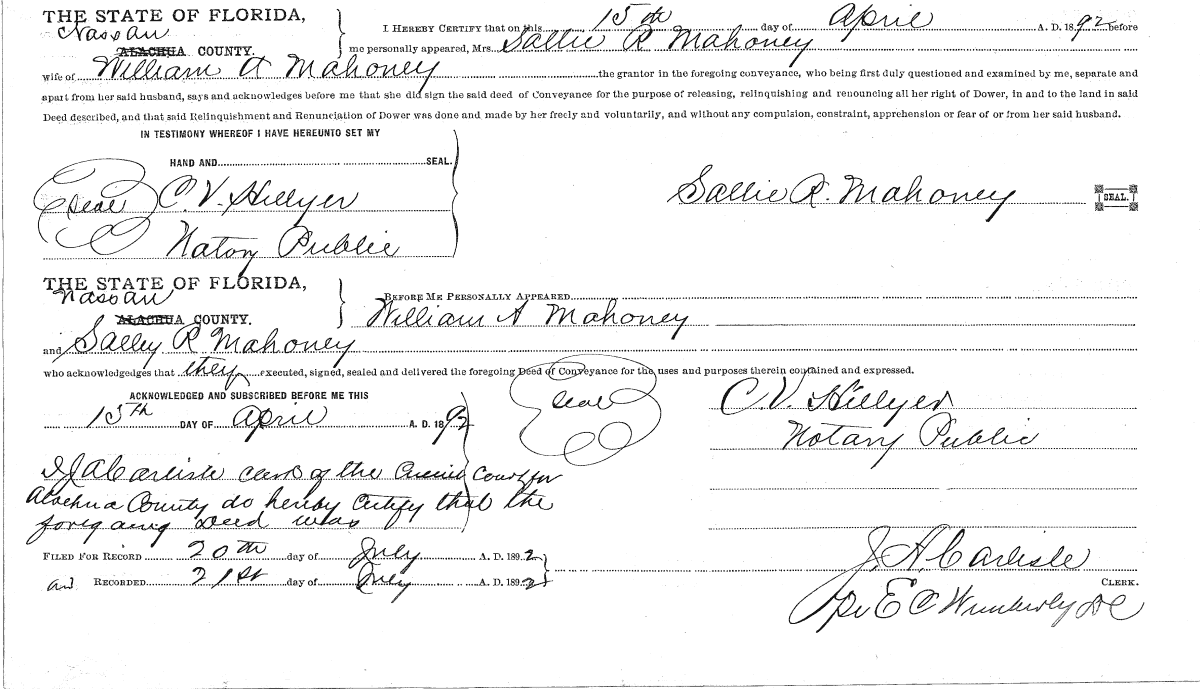 THE STATE OF FLORIDA,
Nassau
ALACHUA COUNTY.
I HEREBY CERTIFY that on this 15th day of April A. D. 1892 before
me personally appeared, Mrs. Sallie R Mahoney
wife of William A Mahoney the grantor in the foregoing conveyance, who being first duly questioned and examined by me, separate and
apart from her said husband, says and acknowledges before me that she did sign the said deed of Conveyance for the purpose of releasing, relinquishing and renouncing all her right of Dower, in and to the land in said
Deed described, and that said Relinquishment and Renunciation of Dower was done and made by her freely and voluntarily, and without any compulsion, constraint, apprehension or fear of or from her said husband.
IN TESTIMONY WHEREOF I HAVE HEREUNTO SET MY
HAND AND SEAL.
Seal C. V. Hillyer
Sallie R. Mahoney SEAL.
Notary Public
THE STATE OF FLORIDA,
Nassau
ALACHUA COUNTY.
BEFORE ME PERSONALLY APPEARED
William A Mahoney
and Salley R Mahoney
who acknowledges that they executed, signed, sealed and delivered the foregoing Deed of Conveyance for the uses and purposes therein contained and expressed.
ACKNOWLEDGED AND SUBSCRIBED BEFORE ME THIS
15th DAY OF April A. D. 1892
Seal
C. V. Hillyer
Notary Public
I J A Carlisle clerk of the Circuit Court for
Alachua County do hereby certify that the
foregoing deed was
FILED FOR RECORD 20th day of July A. D. 1892
and RECORDED 21st day of July A. D. 1892
J. A. Carlisle
CLERK.
Pr E C Wimberly DC